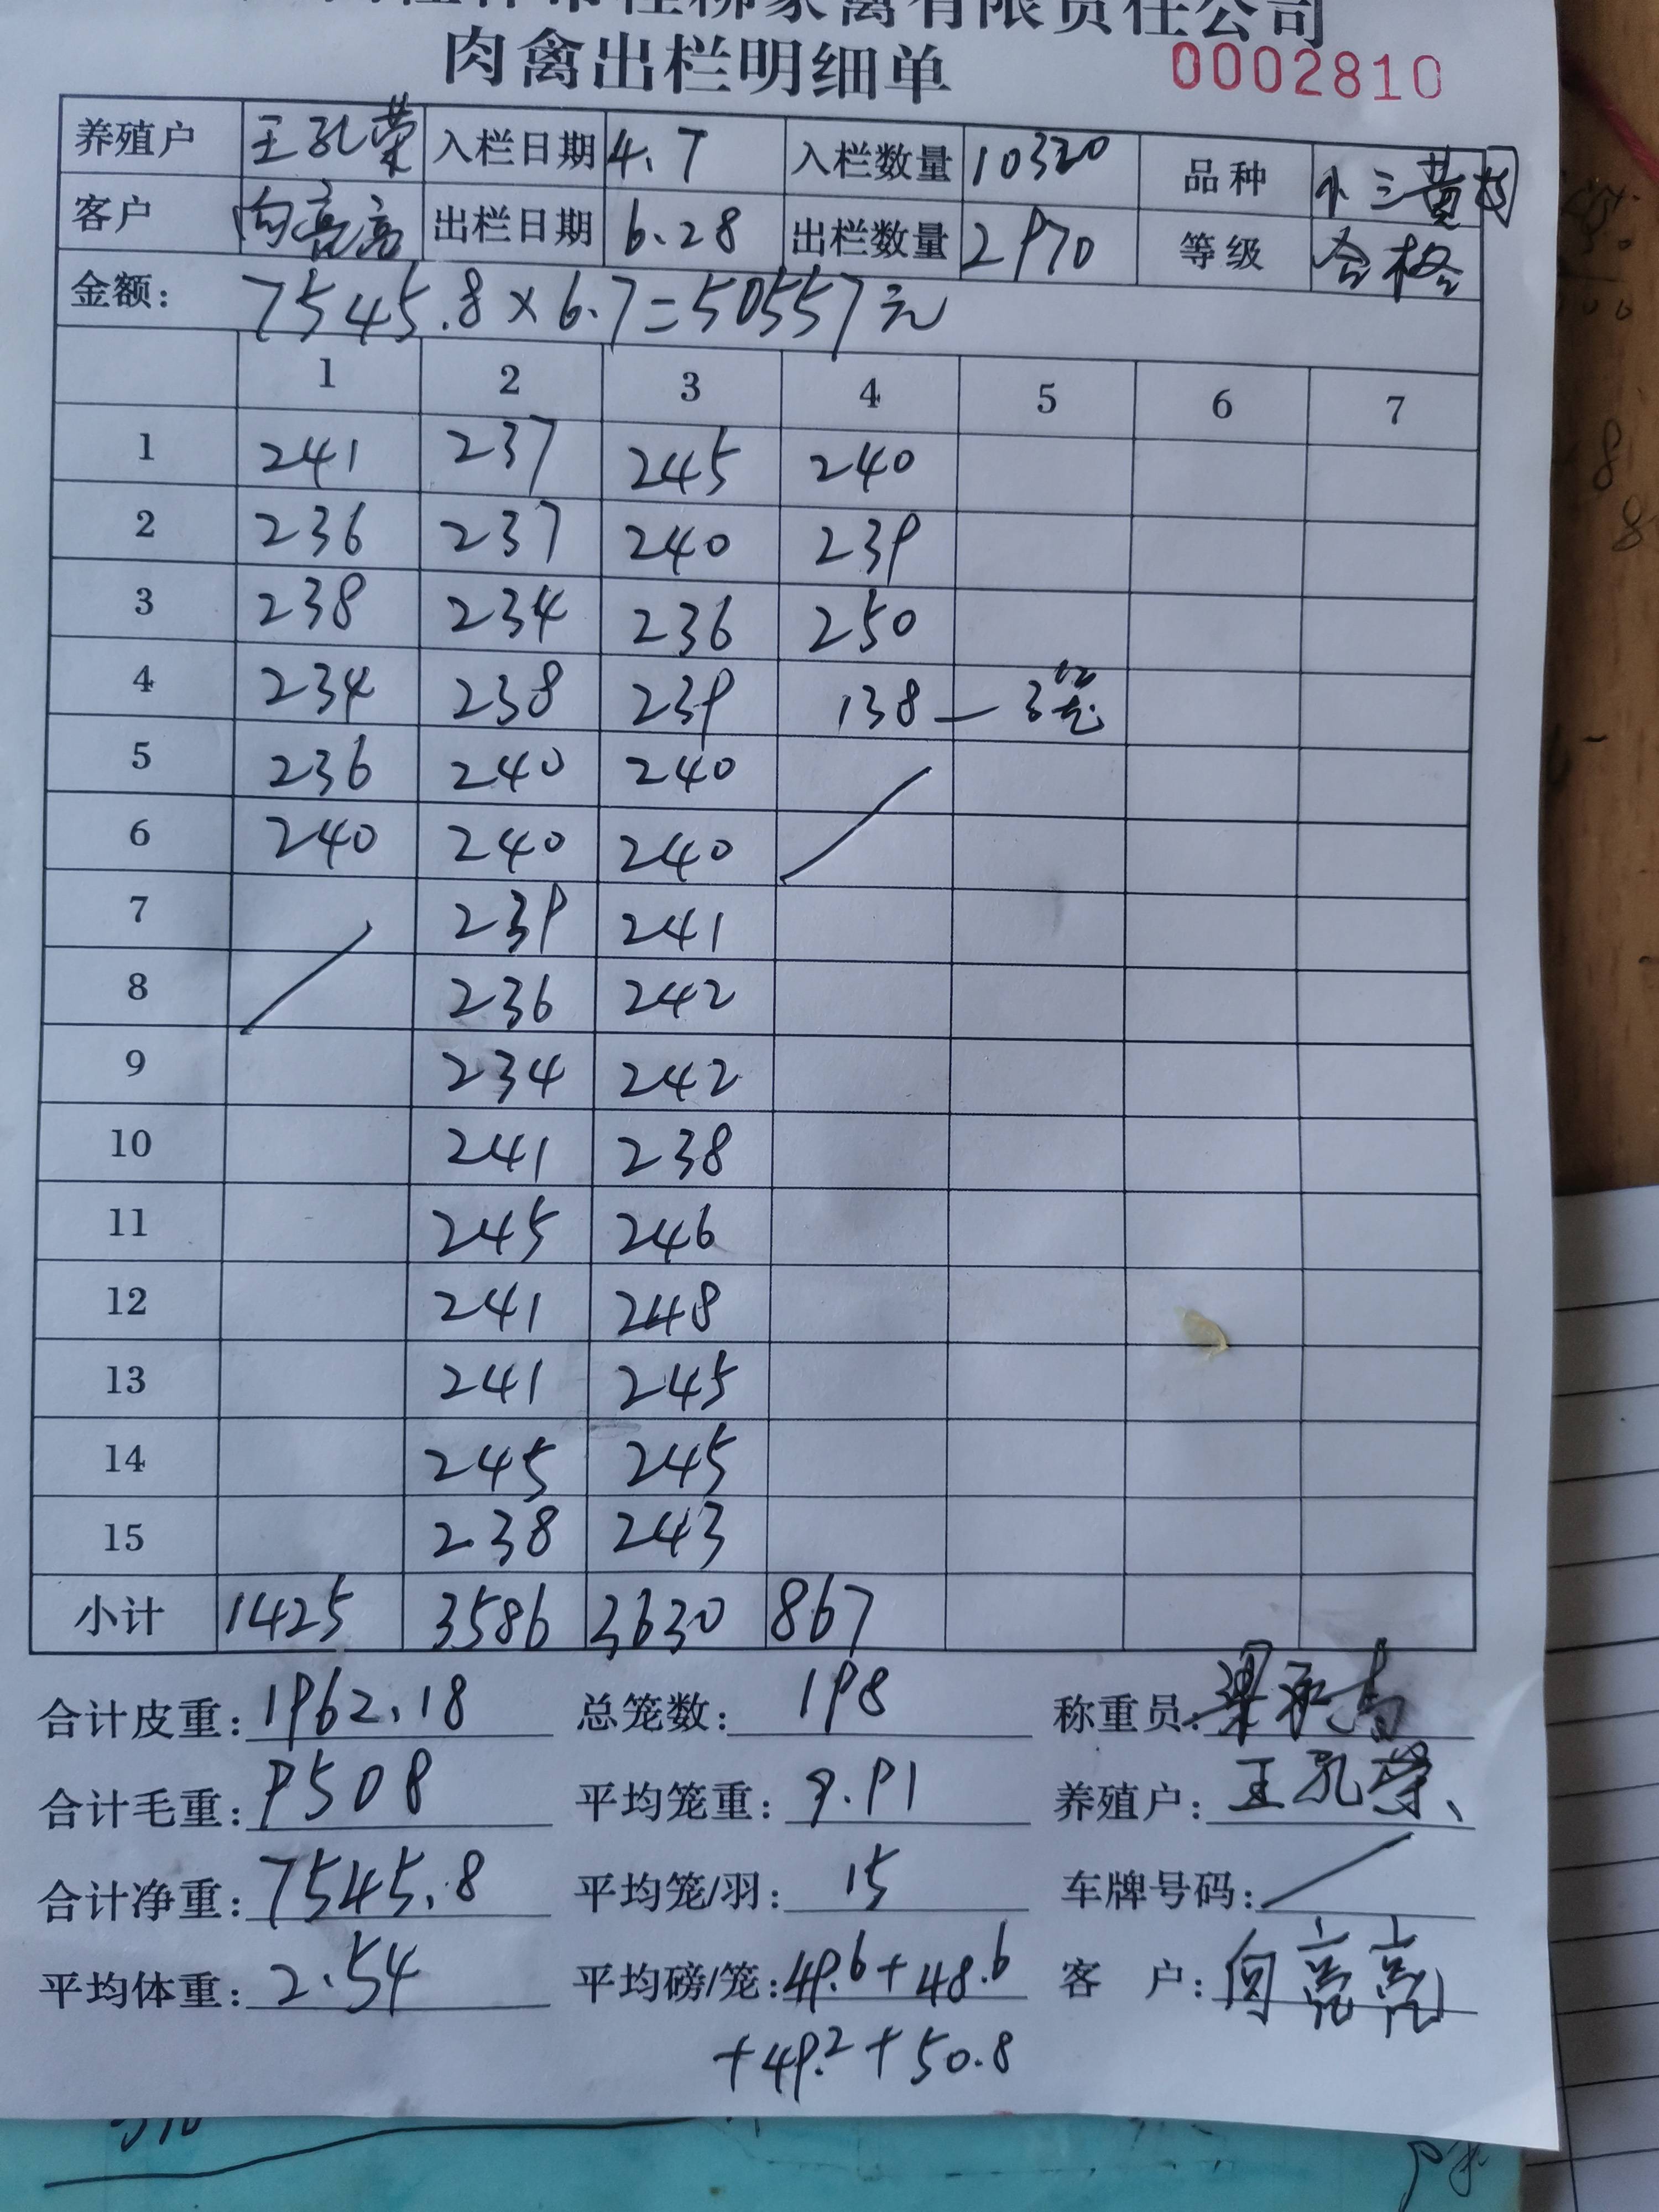 家禽有限责任公司
肉禽出栏明细单 0002810
养殖户 王孔荣 入栏日期 4.7 入栏数量 10320 品种 小三黄
客户 向亮亮 出栏日期 6.28 出栏数量 2970 等级 合格
金额: 7545.8×6.7=50557元
1 2 3 4 5 6 7
1 241 237 245 240
2 236 237 240 239
3 238 234 236 250
4 234 238 239 138 — 3笼
5 236 240 240
6 240 240 240
7 239 241
8 236 242
9 234 242
10 241 238
11 245 246
12 241 248
13 241 245
14 245 245
15 238 243
小计 1425 3586 3630 867
合计皮重: 1962.18 总笼数: 198 称重员:
合计毛重: 9508 平均笼重: 9.91 养殖户: 王孔荣
合计净重: 7545.8 平均笼/羽: 15 车牌号码:
平均体重: 2.54 平均磅/笼: 49.6+48.6 客户: 向亮亮
+49.2+50.8